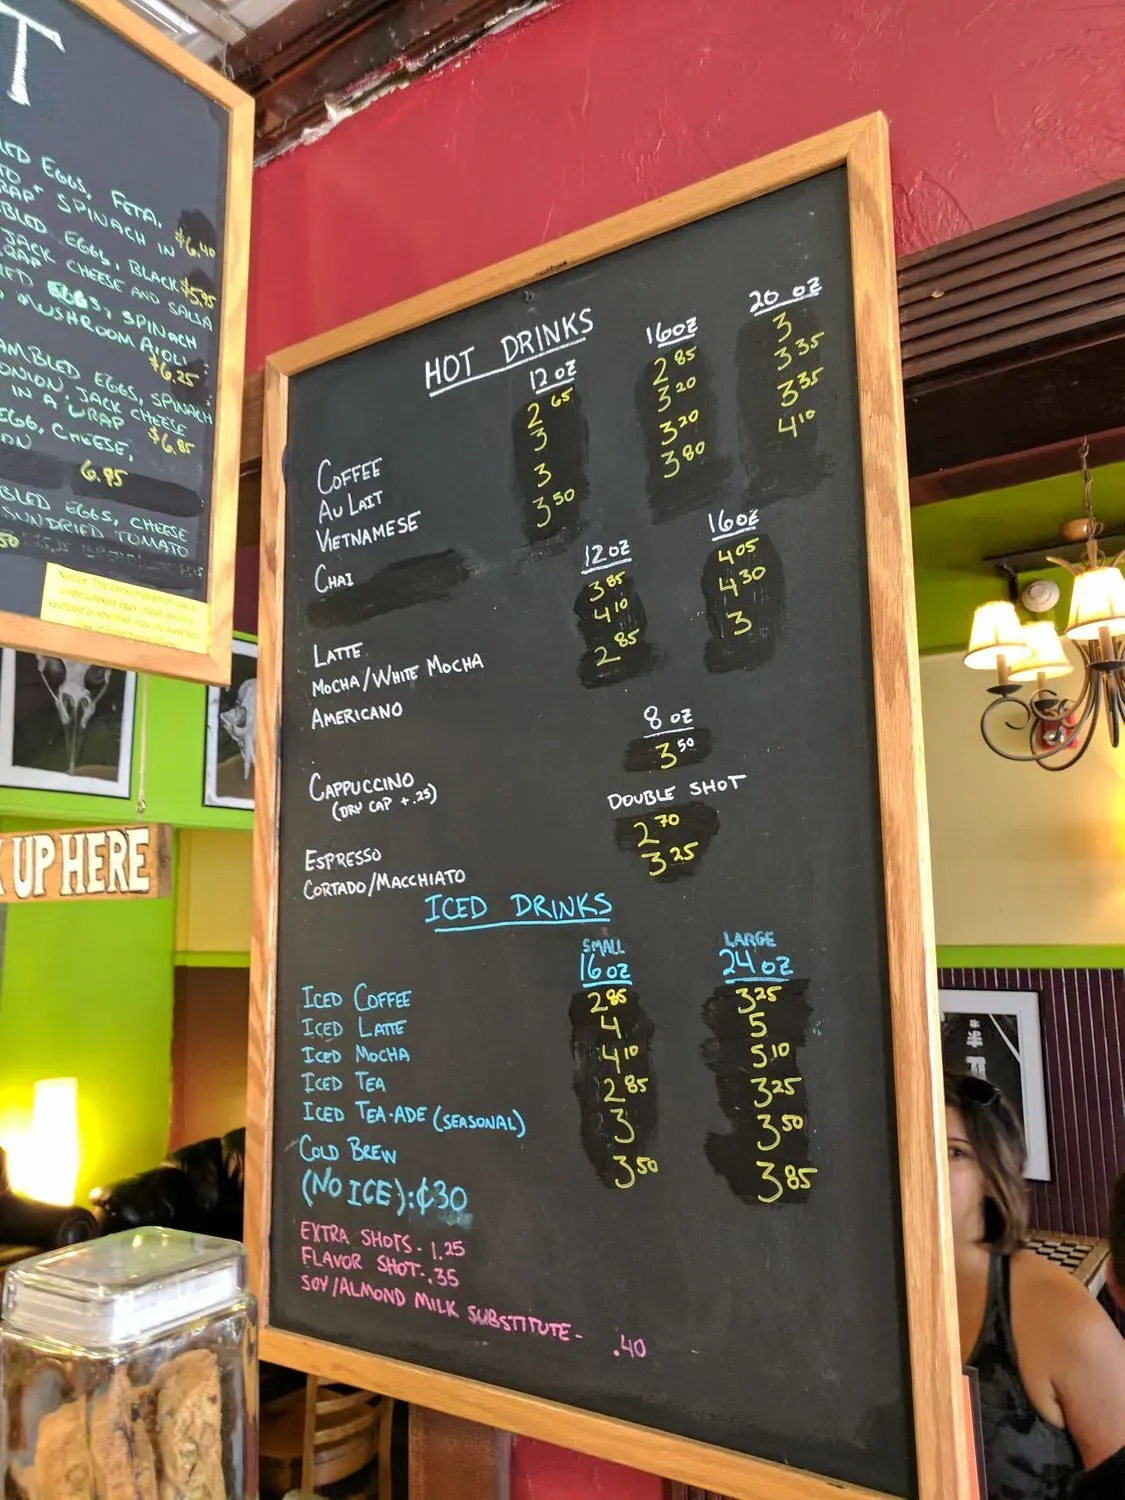 T
LED EGGS, FETA,
TO + SPINACH IN
RAP $6.40
BLED EGGS, BLACK
JACK CHEESE AND SALSA
RAP $5.95
RED EGGS, SPINACH
MUSHROOM AIOLI
$6.25
AMBLED EGGS, SPINACH
ONION, JACK CHEESE
IN A WRAP $6.85
EGG, CHEESE,
ON
6.95
BLED EGGS, CHEESE
SUNDRIED TOMATO
50
UP HERE
HOT DRINKS
12 oz 16 oz 20 oz
COFFEE 2 65 2 85 3
AU LAIT 3 3 20 3 35
VIETNAMESE 3 3 20 3 35
CHAI 3 50 3 80 4 10
12 oz 16 oz
LATTE 3 85 4 05
MOCHA/WHITE MOCHA 4 10 4 30
AMERICANO 2 85 3
8 oz
CAPPUCCINO 3 50
(DRY CAP +.25)
DOUBLE SHOT
ESPRESSO 2 70
CORTADO/MACCHIATO 3 25
ICED DRINKS
SMALL LARGE
16 oz 24 oz
ICED COFFEE 2 85 3 25
ICED LATTE 4 5
ICED MOCHA 4 10 5 10
ICED TEA 2 85 3 25
ICED TEA-ADE (SEASONAL) 3 3 50
COLD BREW 3 50 3 85
(NO ICE):¢30
EXTRA SHOTS- 1.25
FLAVOR SHOT-.35
SOY/ALMOND MILK SUBSTITUTE- .40